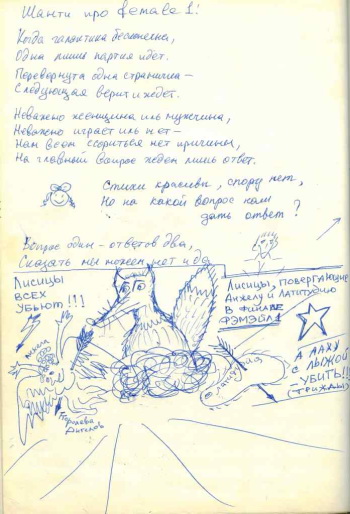 Шанти про female 1:
Когда галактика бесконечна,
Одна лишь партия идет.
Перевернута одна страничка –
Следующая верит и ждет.
Неважно женщина иль мужчина,
Неважно играет иль нет –
Нам всем ссориться нет причины,
На главный вопрос ждем лишь ответ.
Стихи красивы, спору нет,
Но на какой вопрос нам
дать ответ?
Вопрос один – ответов два,
Сказать мы можем нет и да
ЛИСИЦЫ
ВСЕХ
УБЬЮТ!!!
Лисицы, повергающие
Анжелу и Латитудию
В ФИНАЛЕ
ФЭМЭЙЛ 1
А ЛАХУ
С ЛЫЖОЙ
– УБИТЬ!!!
(ТРИЖДЫ)
Королева
Ангелов